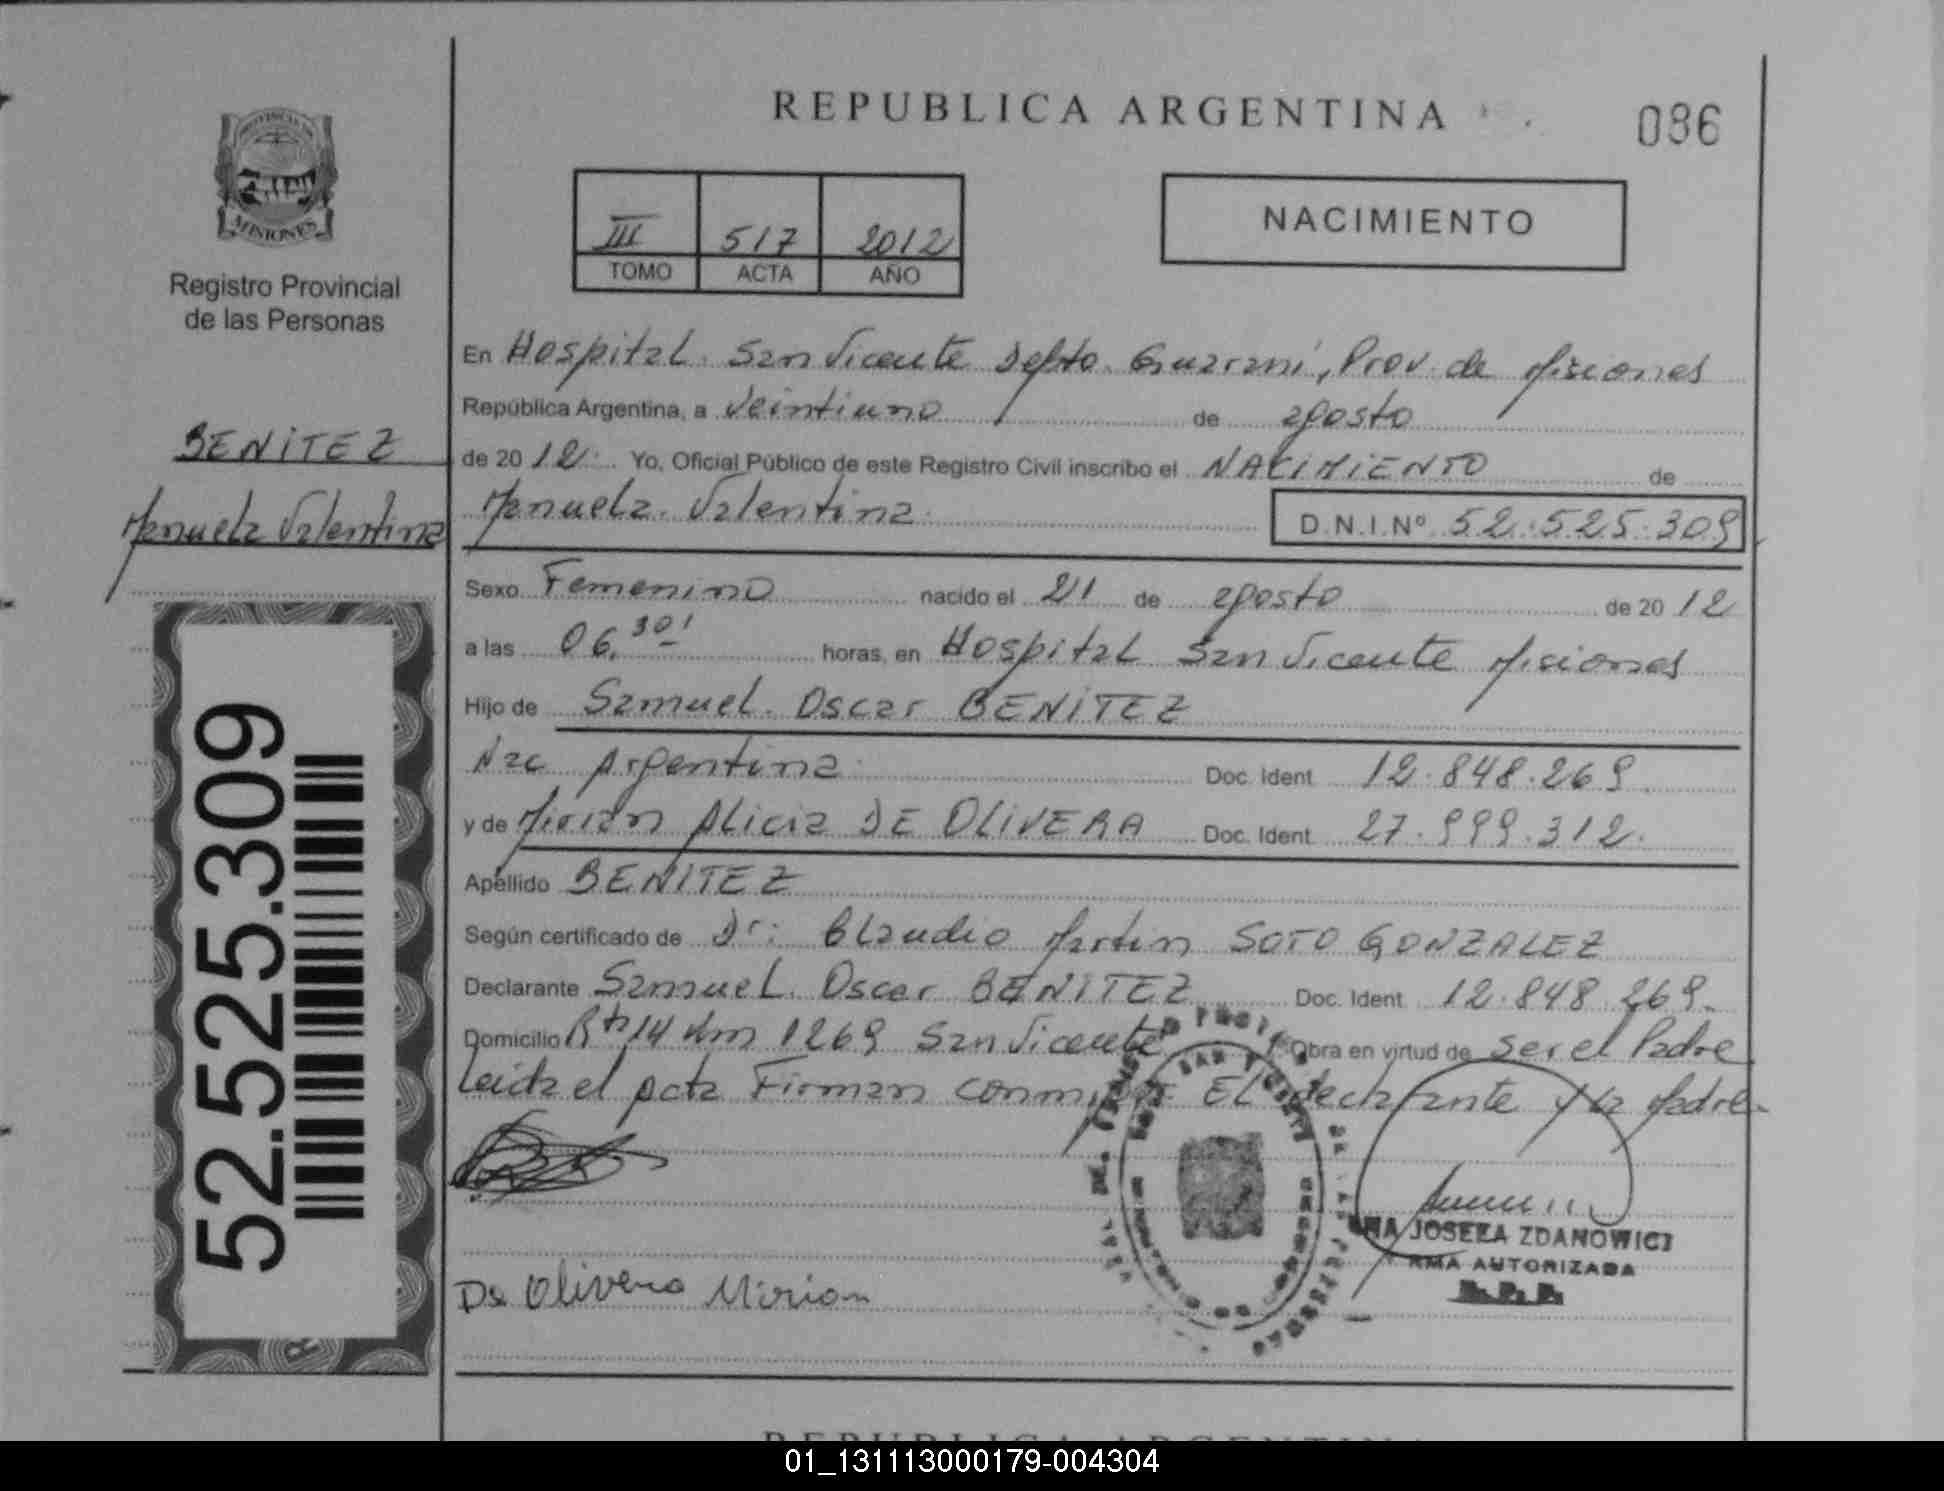 REPUBLICA ARGENTINA
086
MISIONES
Registro Provincial
de las Personas
III 517 2012
TOMO ACTA AÑO
NACIMIENTO
BENITEZ
Manuela Valentina
52.525.309
En Hospital San Vicente Depto. Guarani, Prov. de Misiones
República Argentina, a Veintiuno de agosto
de 2012. Yo, Oficial Público de este Registro Civil inscribo el NACIMIENTO de
Manuela Valentina D.N.I.Nº 52.525.309
Sexo Femenino nacido el 21 de agosto de 2012
a las 06,30' horas, en Hospital San Vicente Misiones
Hijo de Samuel Oscar BENITEZ
Nac Argentina Doc. Ident 12.848.269
y de Mirian Alicia DE OLIVERA Doc. Ident 27.999.312.
Apellido BENITEZ
Según certificado de Dr: Claudio Martin SOTO GONZALEZ
Declarante Samuel Oscar BENITEZ Doc. Ident 12.848.269.
Domicilio Rta 14 Km 1269 San Vicente Obra en virtud de ser el Padre
Leida el Acta Firman conmigo El declarante y la Madre.
De Olivera Mirian
JOSEFA ZDANOWICZ
FIRMA AUTORIZADA
R.P.P.
REPUBLICA ARGENTINA
01_131113000179-004304